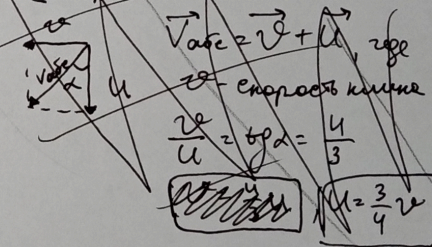 v
Vабс α u
V⃗абс = v⃗ + u⃗, где
v - скорость клина
v/u = tg α = 4/3
u = 3/4 v